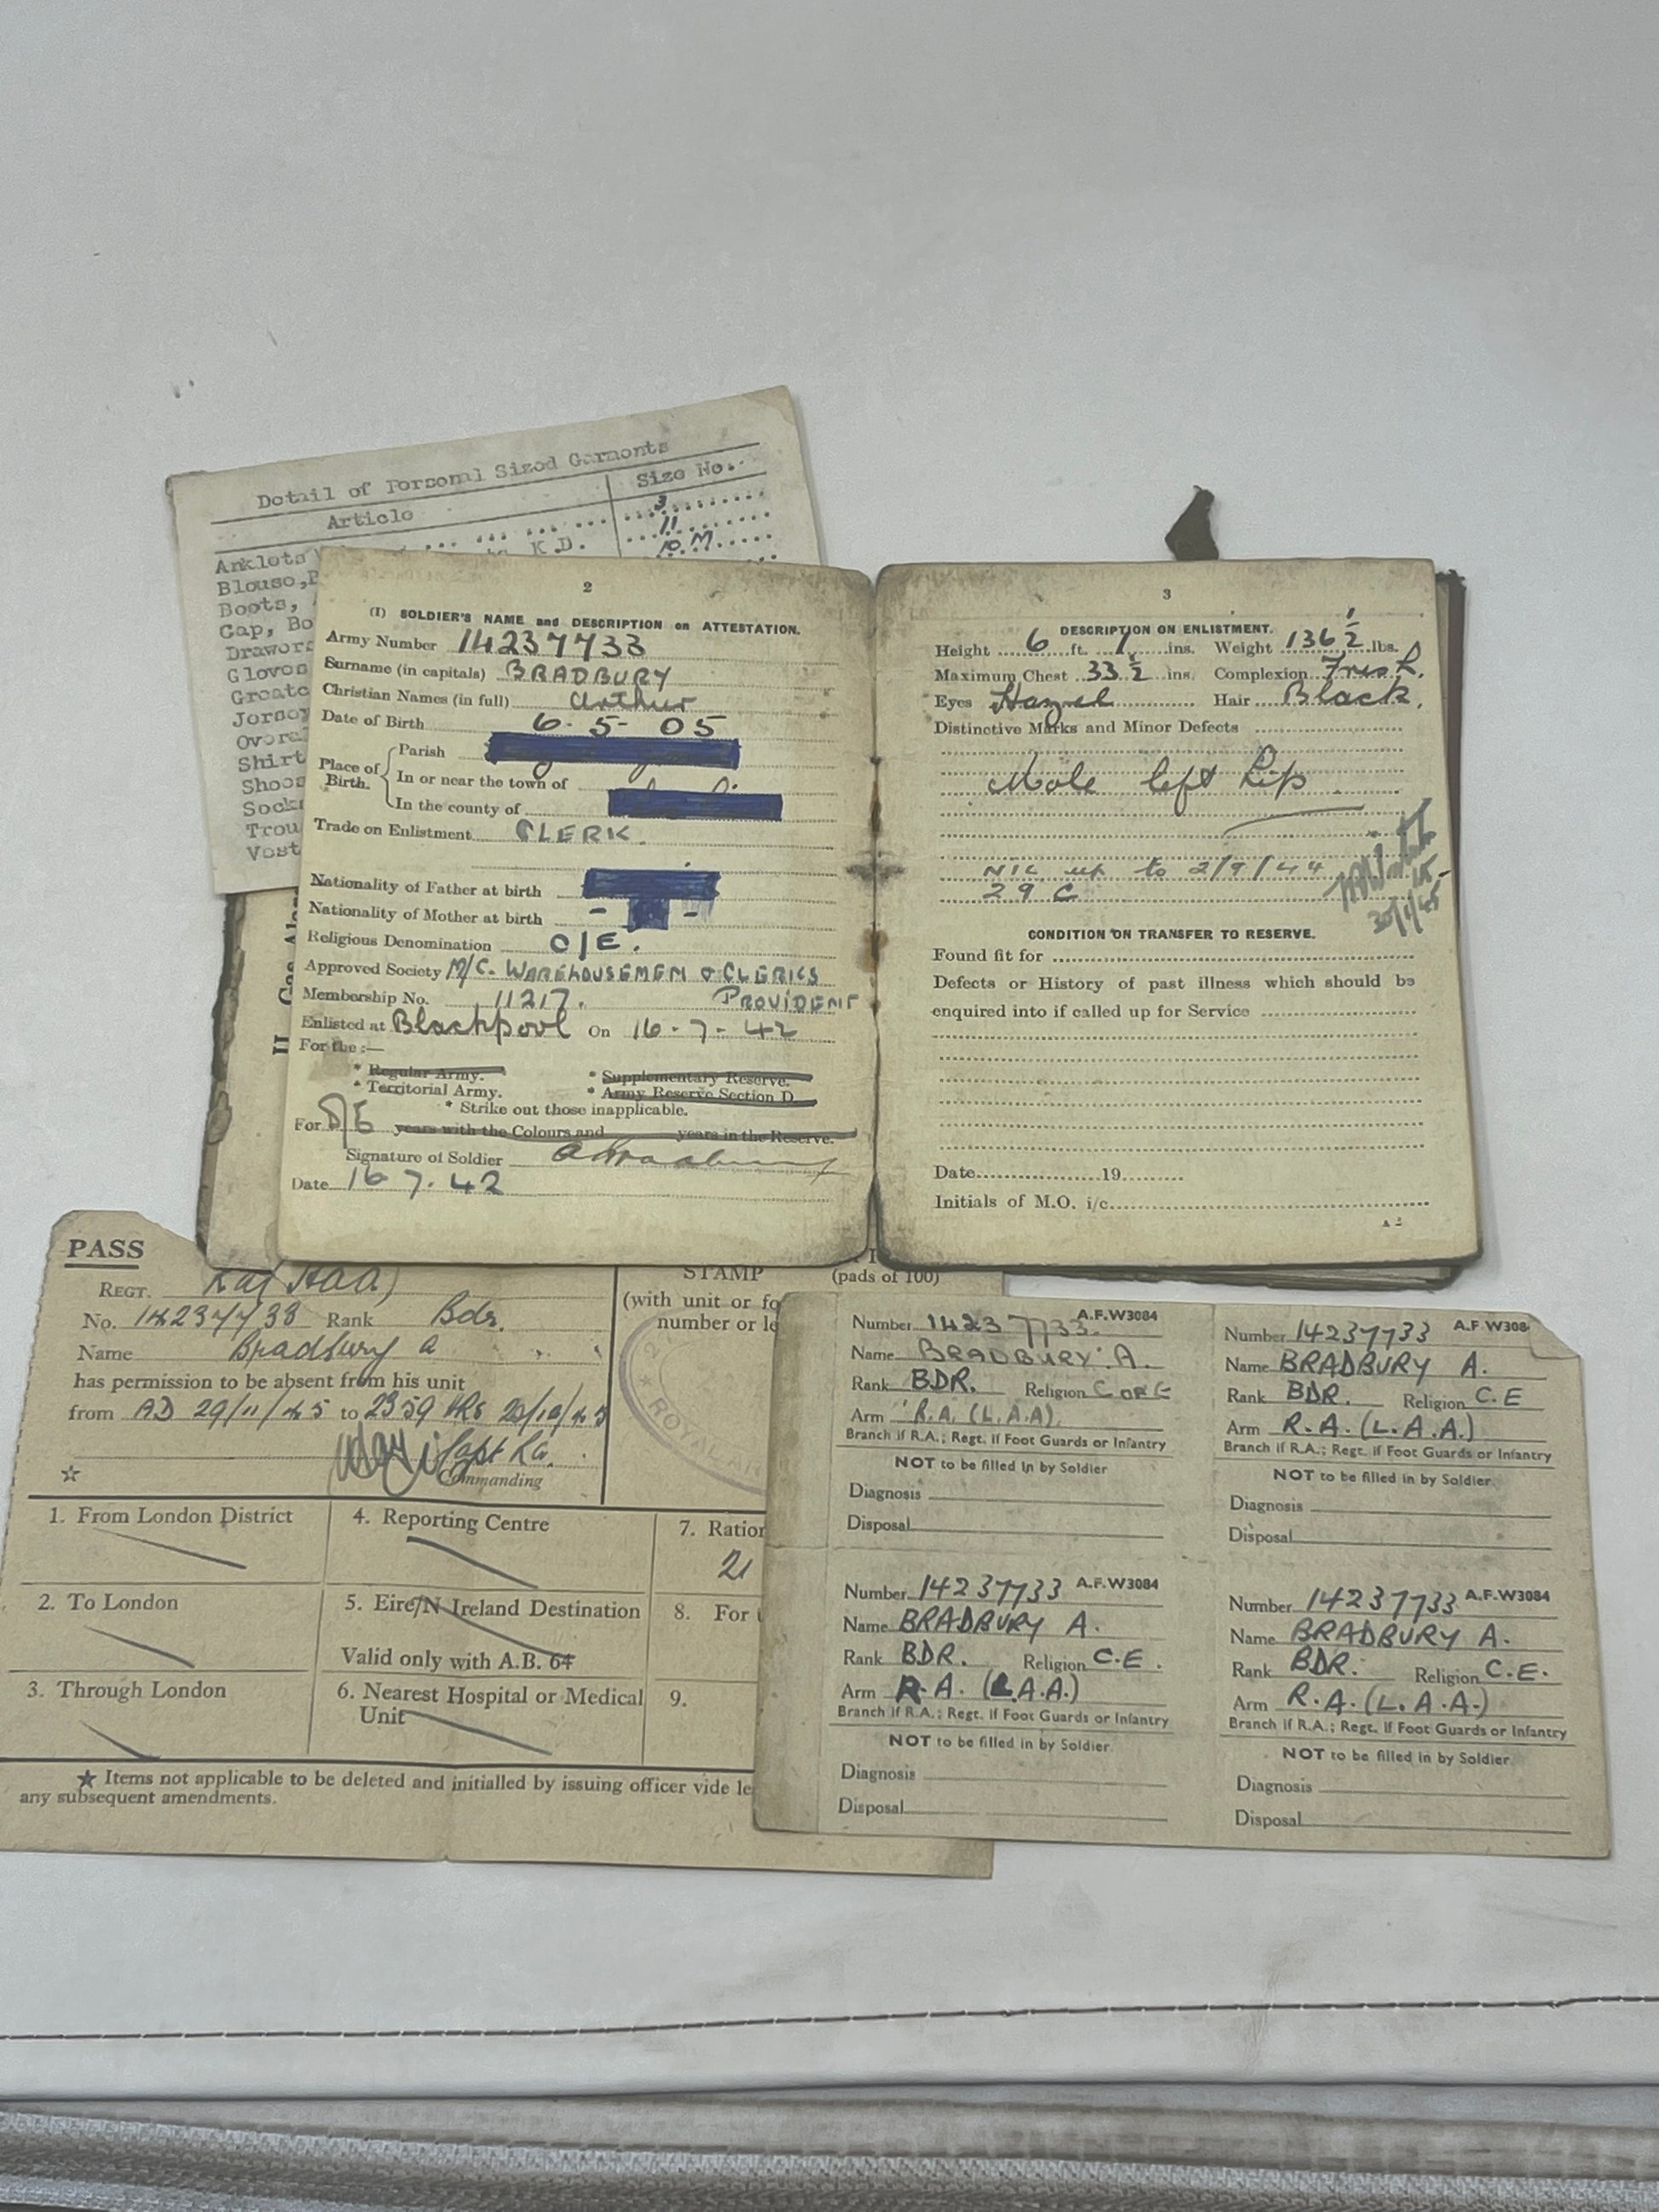 Detail of Porsonal Sizod Garmonts
Article Size No.
Anklots 3
Blouso, 11
Boots, K.D. 10 M
Cap, Bo
Drawors
Glovos
Groatc
Jorsoy
Ovoral
Shirt
Shoos
Socks
Trou
Vost
2
(I) SOLDIER'S NAME and DESCRIPTION on ATTESTATION.
Army Number 14237733
Surname (in capitals) BRADBURY
Christian Names (in full) Arthur
Date of Birth 6-5-05
Place of Birth.
Parish
In or near the town of
In the county of
Trade on Enlistment CLERK.
Nationality of Father at birth
Nationality of Mother at birth
Religious Denomination C/E.
Approved Society M/C. WAREHOUSEMEN & CLERKS
Membership No. 11217. PROVIDENT
Enlisted at Blackpool On 16-7-42
For the :—
* Regular Army. * Supplementary Reserve.
* Territorial Army. * Army Reserve Section D.
* Strike out those inapplicable.
For D/E years with the Colours and years in the Reserve.
Signature of Soldier ABradbury
Date 16 7. 42
3
DESCRIPTION ON ENLISTMENT.
Height 6 ft. 1 ins. Weight 136½ lbs.
Maximum Chest 33½ ins. Complexion Fresh.
Eyes Hazel Hair Black.
Distinctive Marks and Minor Defects
Mole left hip
NIL up to 2/9/44
29 C
30/1/45
CONDITION ON TRANSFER TO RESERVE.
Found fit for
Defects or History of past illness which should be
enquired into if called up for Service
Date 19
Initials of M.O. i/c.
A 2
PASS
REGT. RA (HAA)
No. 14237733 Rank Bdr.
Name Bradbury A
has permission to be absent from his unit
from AD 29/11/45 to 2359 HRS
Capt RA.
Commanding
STAMP
(with unit or fo
number or le
(pads of 100)
ROYAL AR
1. From London District
4. Reporting Centre
7. Ration
21
2. To London
5. Eire/N Ireland Destination
Valid only with A.B. 64
8. For
3. Through London
6. Nearest Hospital or Medical
Unit
9.
★ Items not applicable to be deleted and initialled by issuing officer vide le
any subsequent amendments.
Number 14237733. A.F.W3084
Name BRADBURY. A.
Rank BDR. Religion C OF E
Arm R.A. (L.A.A).
Branch if R.A.; Regt. if Foot Guards or Infantry
NOT to be filled in by Soldier
Diagnosis
Disposal
Number 14237733 A.F.W308
Name BRADBURY A.
Rank BDR. Religion C.E
Arm R.A. (L.A.A.)
Branch if R.A.; Regt. if Foot Guards or Infantry
NOT to be filled in by Soldier.
Diagnosis
Disposal
Number 14237733 A.F.W3084
Name BRADBURY A.
Rank BDR. Religion C.E.
Arm R.A. (L.A.A.)
Branch if R.A.; Regt. if Foot Guards or Infantry
NOT to be filled in by Soldier.
Diagnosis
Disposal
Number 14237733 A.F.W3084
Name BRADBURY A.
Rank BDR. Religion C.E.
Arm R.A. (L.A.A.)
Branch if R.A.; Regt. if Foot Guards or Infantry
NOT to be filled in by Soldier.
Diagnosis
Disposal